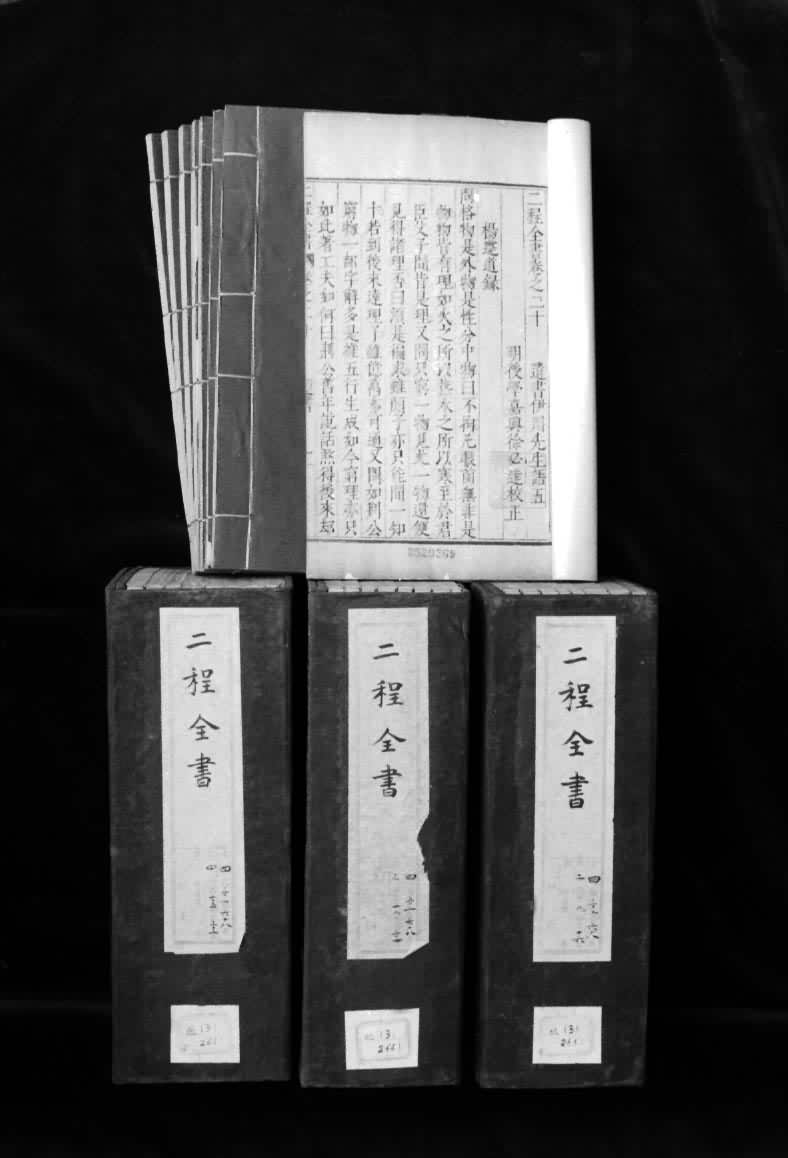 二程全書卷之二十　遺書伊川先生語五
明後學嘉興徐必達校正
楊遵道錄
問格物是外物是性分中物曰不拘凡眼前無非是
物物皆有理如火之所以熱水之所以寒至於君
臣父子間皆是理又問只窮一物見此一物還便
見得諸理否曰須是徧求雖顏子亦只能聞一知
十若到後來達理了雖億萬亦可通又問如荊公
窮物一部字解多是推五行生成如今窮理亦只
如此著工夫如何曰荊公舊年說話煞得後來却
二程全書
二程全書
二程全書
二程全書
(3)
266
(3)
266
(3)
266